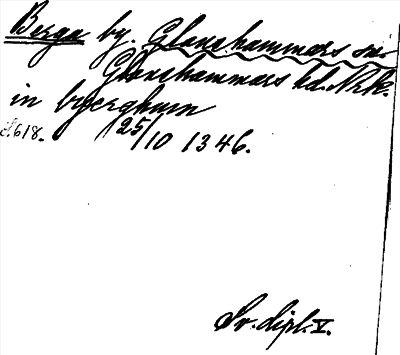 Berga by. Glanshammars sn.
Glanshammars hd. Nrk.
in byærghum
S. 618. 25/10 1346.
Sv. dipl. V.